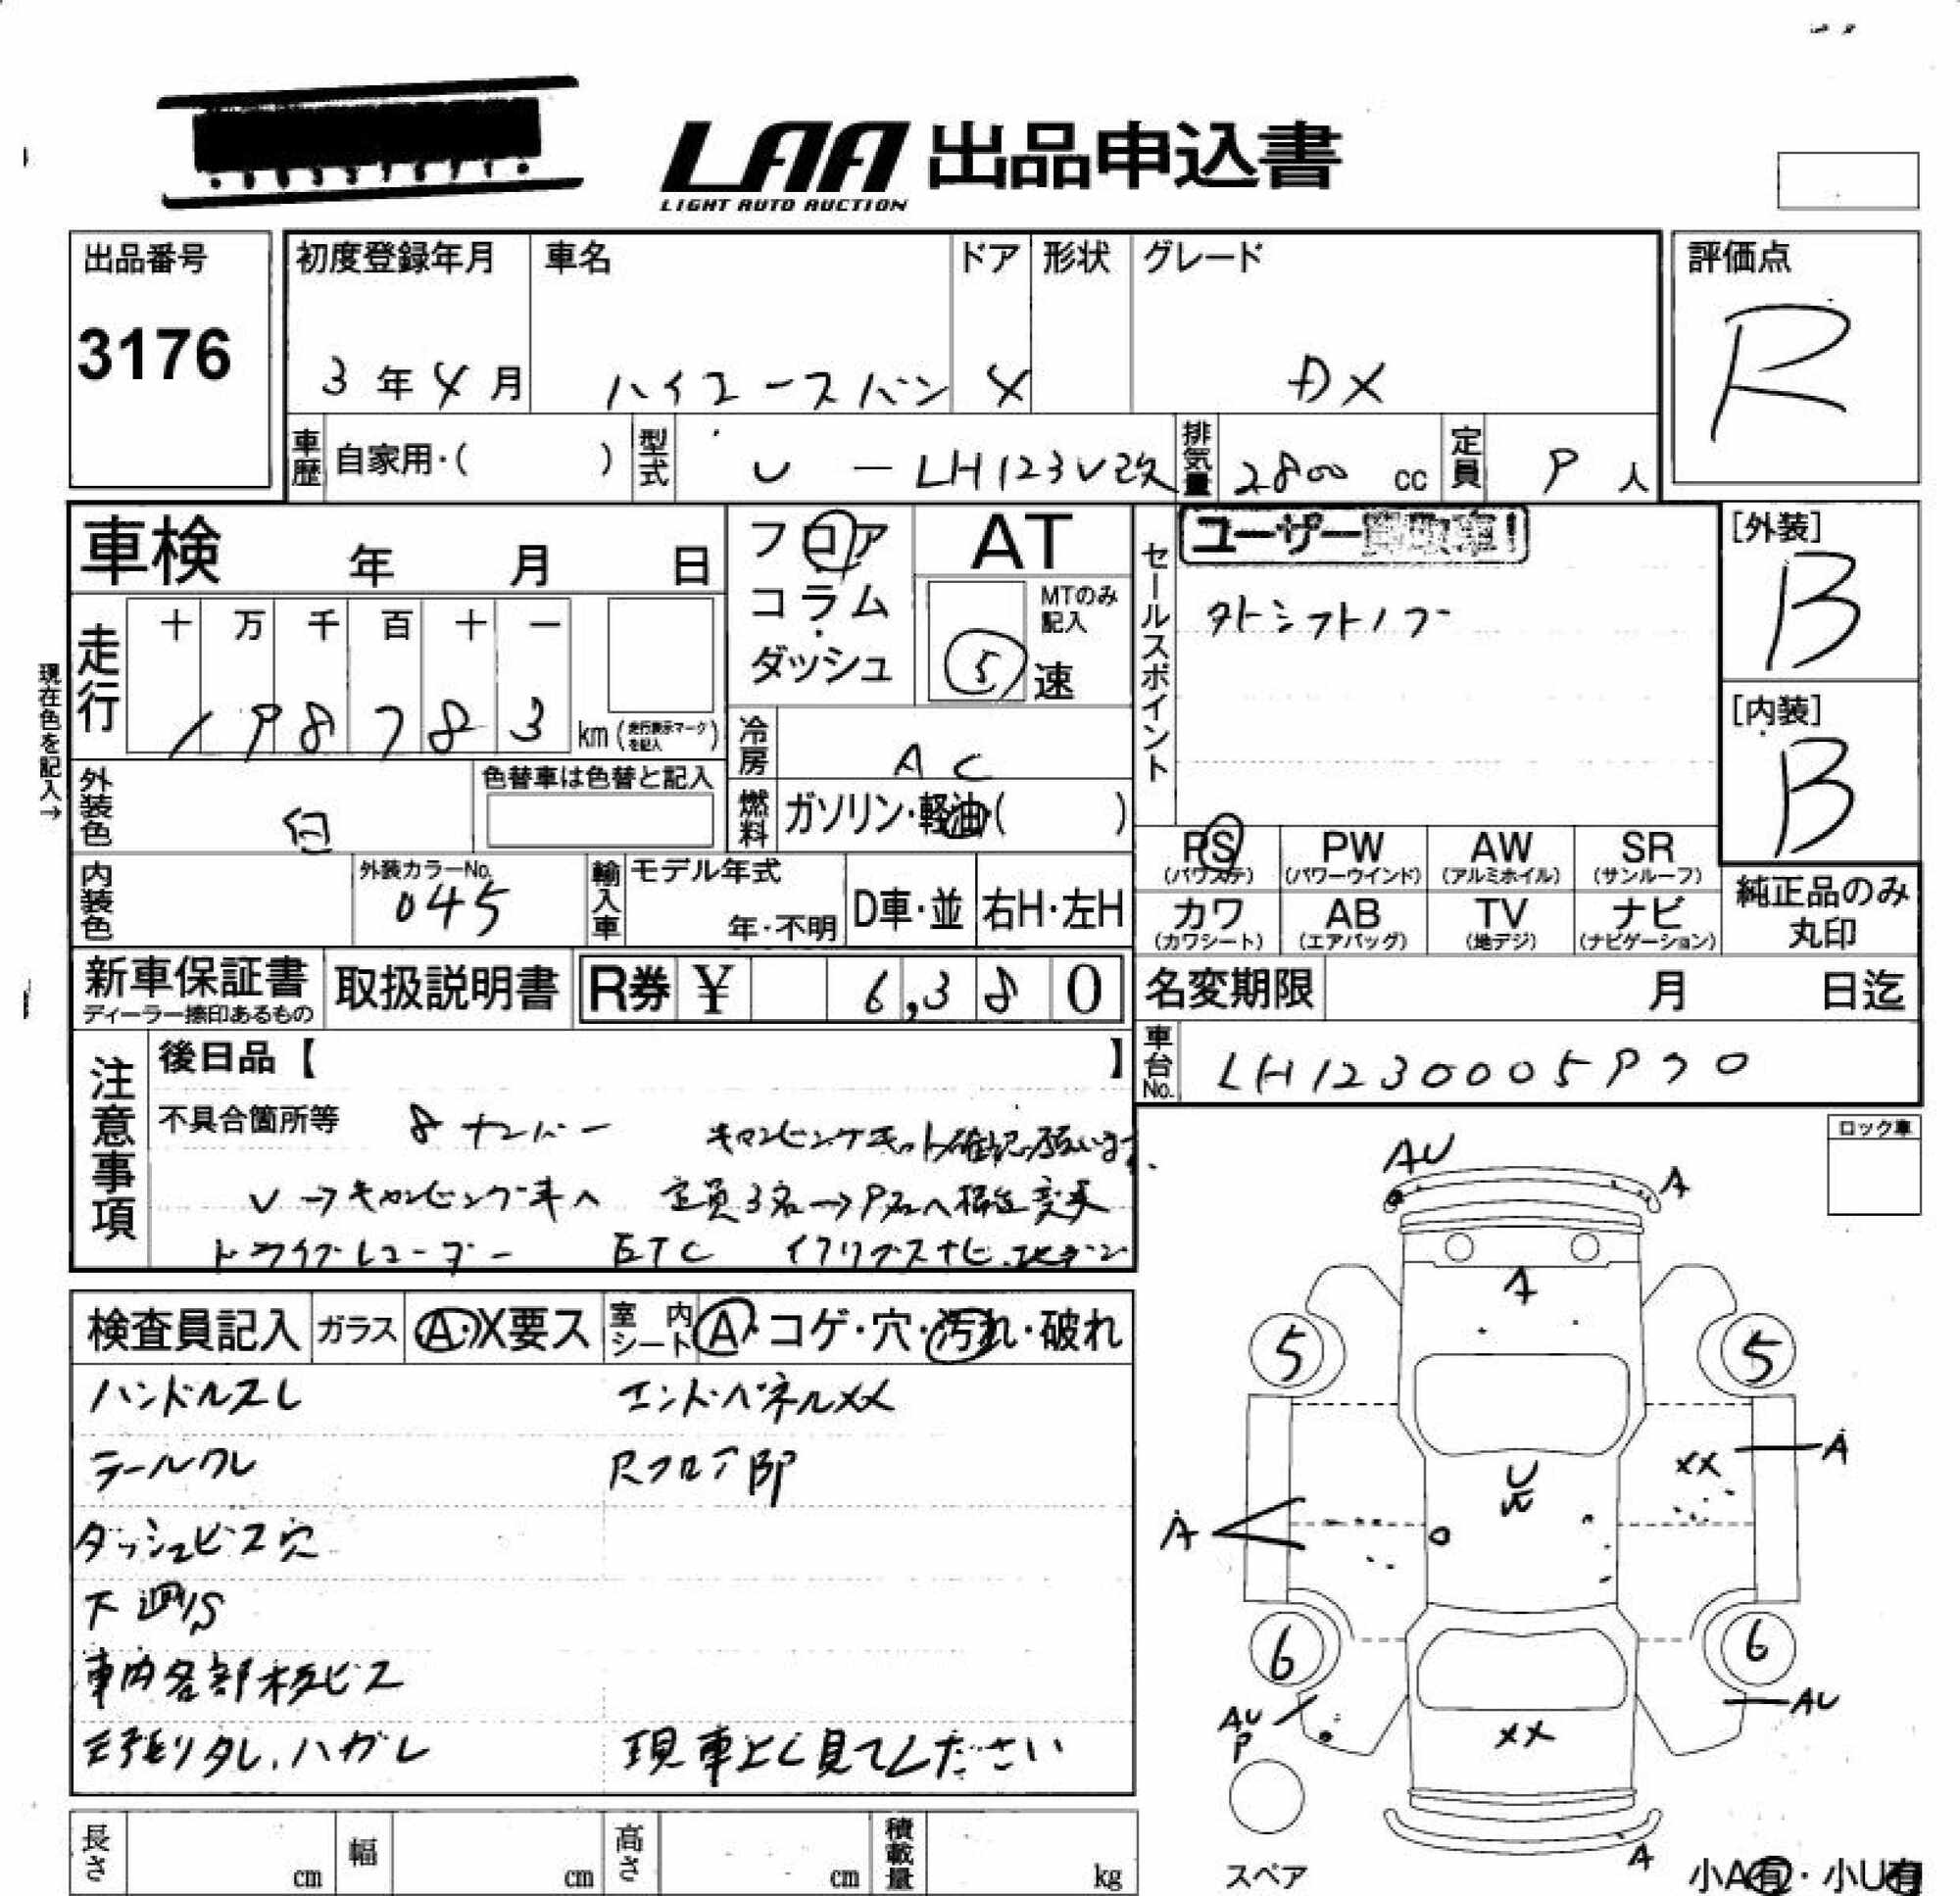 LAA 出品申込書
LIGHT AUTO AUCTION
出品番号 初度登録年月 車名 ドア 形状 グレード 評価点
3176 3年4月 ハイエースバン 4 DX R
車歴 自家用・( ) 型式 U - LH123V改 排気量 2800 cc 定員 9 人
車検 年 月 日 フロア AT セールスポイント ユーザー [外装]
コラム・ MTのみ記入 外シフトノブ B
走行 十 万 千 百 十 一 ダッシュ 5 速
現在色を記入→
198783 km (走行表示マークを記入) 冷房 AC [内装]
外装色 白 色替車は色替と記入 燃料 ガソリン・軽油・( ) B
PS PW AW SR
(パワステ) (パワーウインド) (アルミホイル) (サンルーフ)
内装色 外装カラーNo. 045 輸入車 モデル年式 年・不明 D車・並 右H・左H
カワ AB TV ナビ 純正品のみ
(カワシート) (エアバッグ) (地デジ) (ナビゲーション) 丸印
新車保証書 取扱説明書 R券 ¥ 6,380 名変期限 月 日迄
ディーラー捺印あるもの
注意事項 後日品【 】 車台No. LH1230005970
不具合箇所等 8ナンバー キャンピングキット確認願います.
V→キャンピング車へ 定員3名→9名へ構造変更
ドライブレコーダー ETC イクリプスナビ
ロック車
検査員記入 ガラス A・X要ス 室内シート A・コゲ・穴・汚れ・破れ
ハンドルスレ エンドパネルXX
テールワレ RフロアBP
ダッシュビス穴
下廻りS
車内各部木板ビス
天張りタレ、ハガレ 現車よく見てください
AU
A
A
5 5
XX A
U
A
6 6
AU
AU
P
XX
A
長さ cm 幅 cm 高さ cm 積載量 kg スペア 小A有・小U有